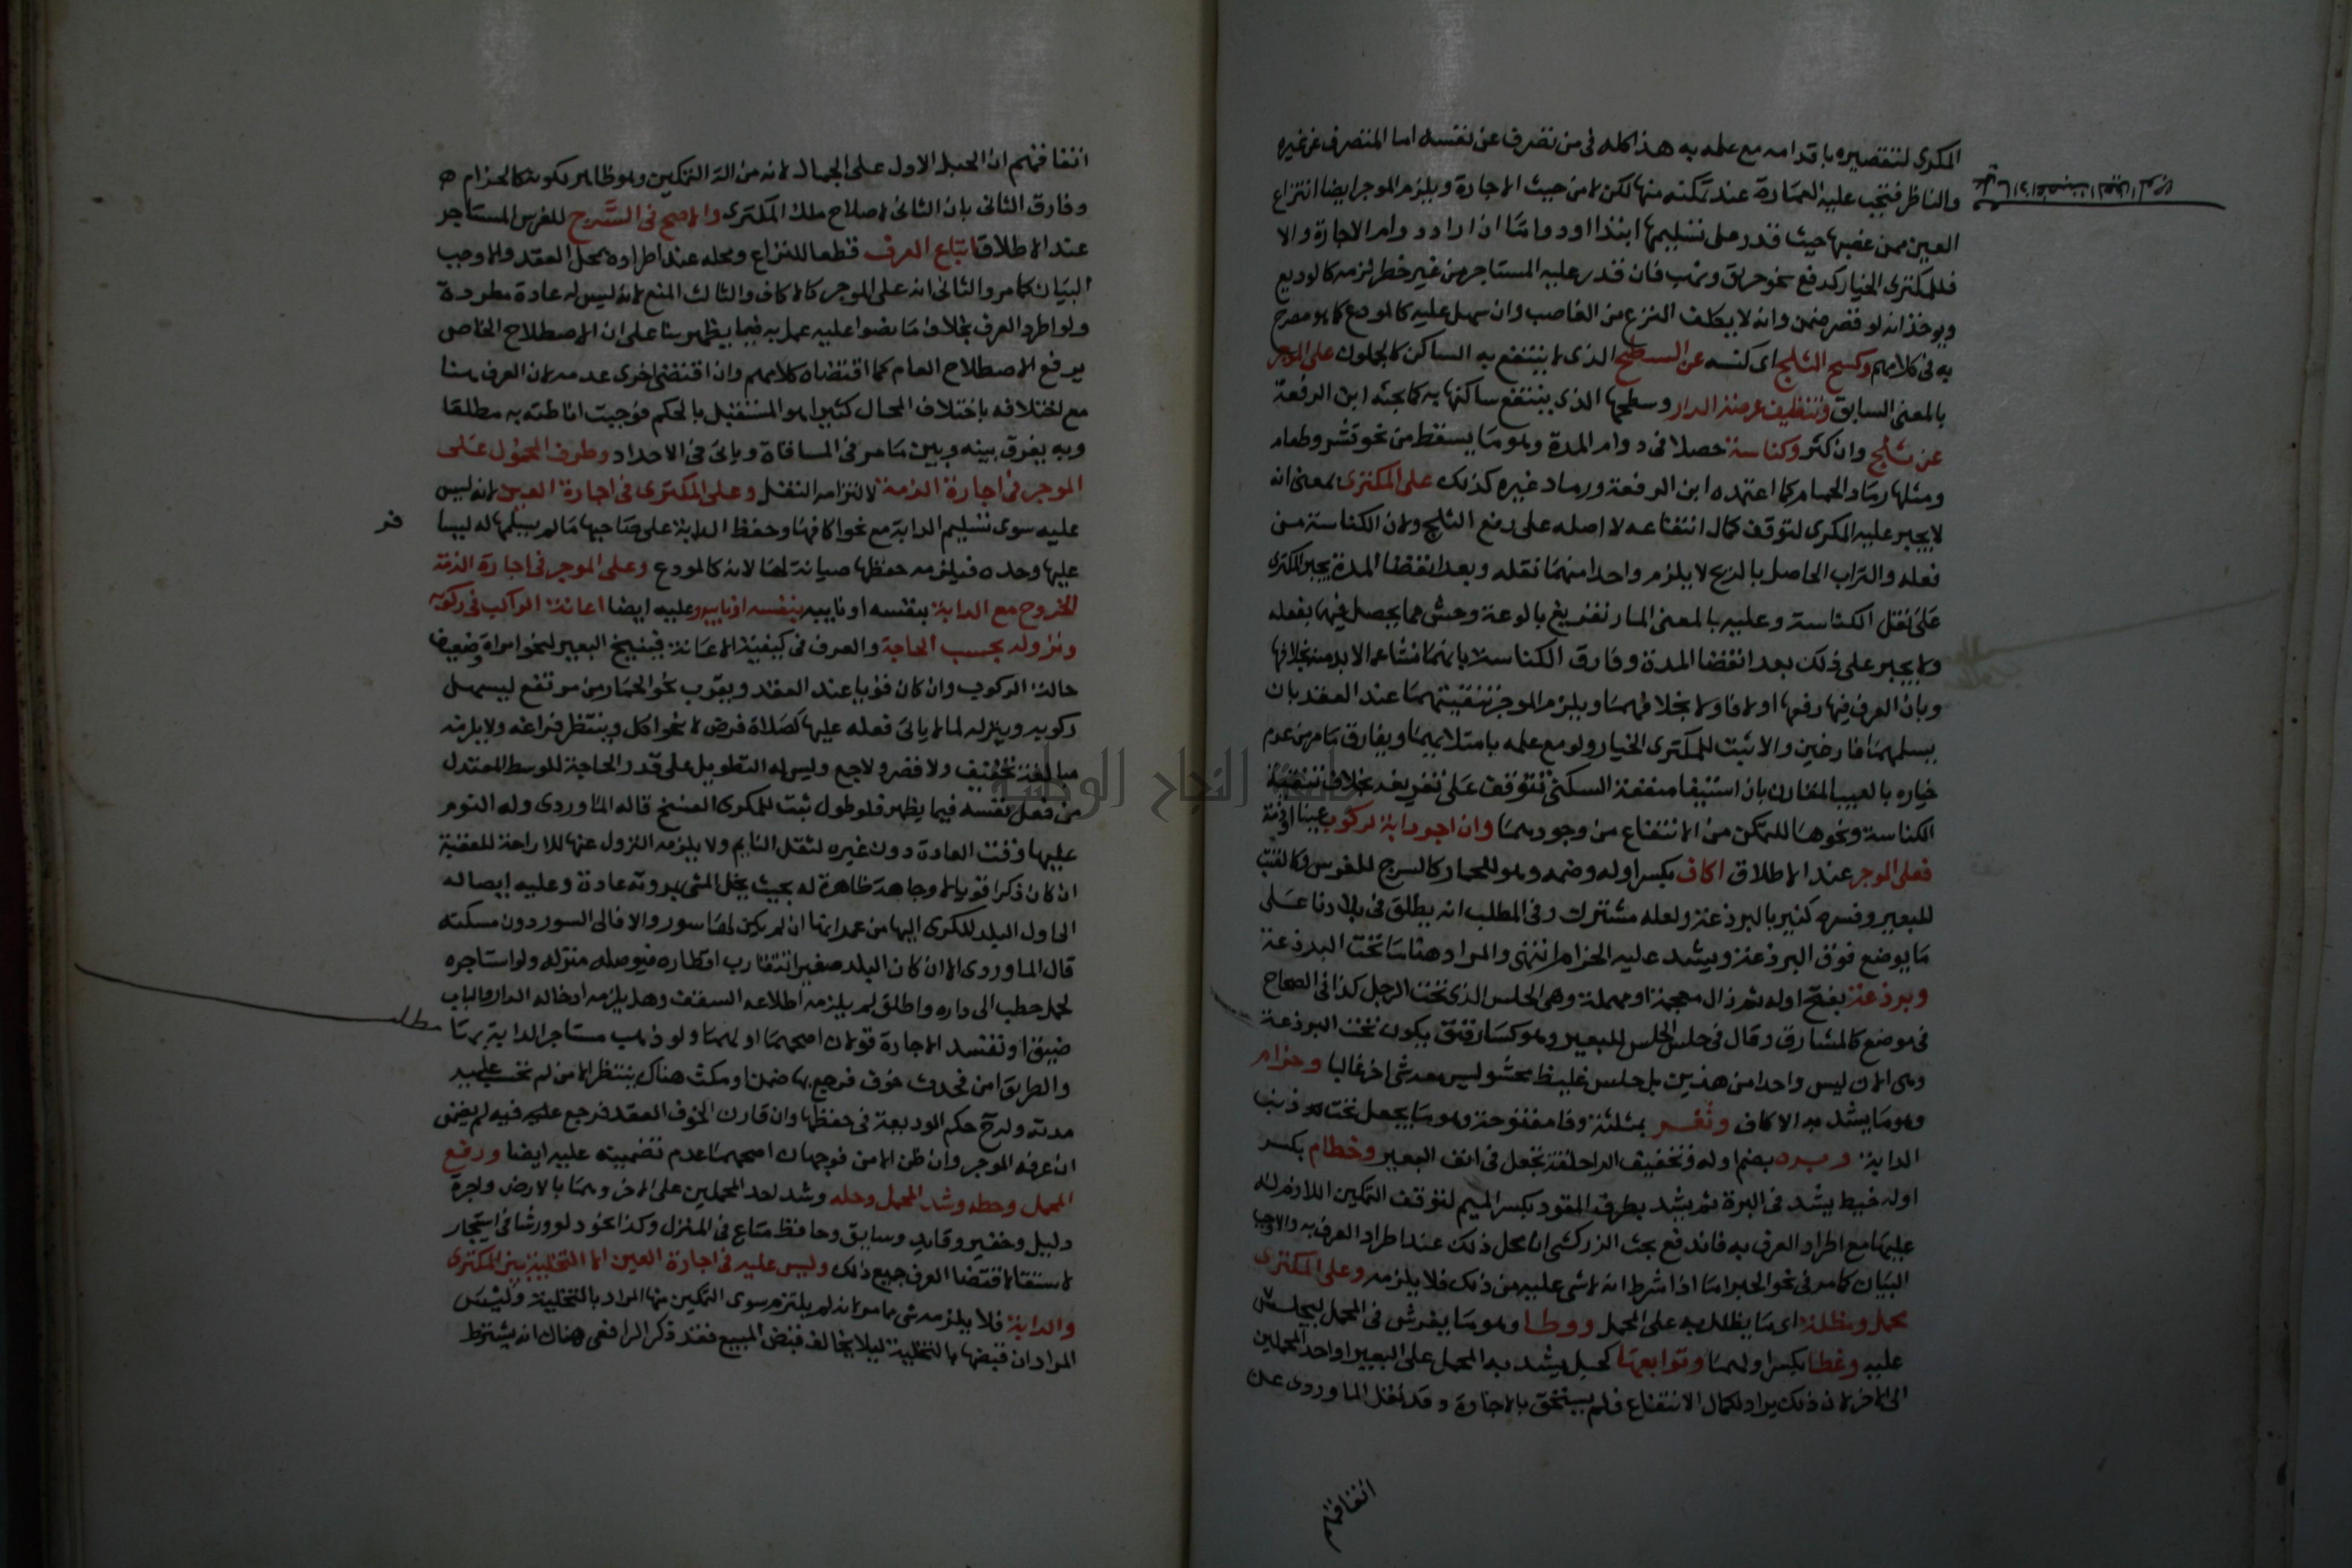 المكرى لتقصيره باقدامه مع علمه به هذا كله فى من تصرف عن نفسه اما المتصرف عن غيره
والناظر فتجب عليه العمارة عند تمكنه منها لكن لا من حيث الاجارة ويلزم الموجر ايضا انتزاع
العين ممن غصبها حيث قدر على تسليمها ابتدا او دواما ان اراد دوام الاجارة والا
فللمكترى الخيار كدفع نحو حريق ونهب فان قدر عليه المستاجر من غير خطر لزمه كالوديع
ويوخذ انه لو قصر ضمن وانه لا يكلف النزع من الغاصب وان سهل عليه كالمودع كما هو مصرح
به فى كلامهم وكسح الثلج اى كنسه عن السطح الذى لا ينتفع به الساكن كالجملون على الموجر
بالمعنى السابق وتنظيف عرصة الدار وسطحها الذى ينتفع ساكنها به كما بحثه ابن الرفعة
عن ثلج وان كثر وكناسة حصلا فى دوام المدة وهو ما يسقط من نحو قشر وطعام
ومثلها رماد الحمام كما اعتمده ابن الرفعة ورماد غيره كذلك على المكترى بمعنى انه
لا يجبر عليه المكرى لتوقف كمال انتفاعه لا اصله على رفع الثلج ولان الكناسة من
فعله والتراب الحاصل بالريح لا يلزم واحدا منهما نقله وبعد انقضا المدة يجبر المكترى
على نقل الكناسة وعليه بالمعنى المار تفريغ بالوعة وحش مما يحصل فيها بفعله
ولا يجبر على ذلك بعد انقضا المدة وفارق الكناسة بانهما نشا عما لا بد منه بخلافها
وبان العرف فيها رفعها اولا فاولا بخلافهما ويلزم الموجر تنقيتهما عند العقد بان
يسلمهما فارغين والا ثبت للمكترى الخيار ولو مع علمه بامتلايهما ويفارق ما مر من عدم
خياره بالعيب المقارن بان استيفا منفعة السكنى تتوقف على تفريغه بخلاف تنقية
الكناسة ونحوها للتمكن من الانتفاع مع وجودهما وان اجر دابة لركوب عينا او ذمة
فعلى الموجر عند الاطلاق اكاف بكسر اوله وضمه وهو للحمار كالسرج للفرس وكالقتب
للبعير وفسره كثير بالبرذعة ولعله مشترك وفى المطلب انه يطلق فى بلادنا على
ما يوضع فوق البرذعة ويشد عليه الحزام انتهى والمراد هنا ما تحت البرذعة
وبرذعة بفتح اوله ثم ذال معجمة او مهملة وهى الحلس الذى تحت الرحل كذا فى الصحاح
فى موضع كالمشارق وقال فى حلس الحلس للبعير وهو كسا رقيق يكون تحت البرذعة
وهى الان ليس واحدا من هذين بل حلس غليظ محشو ليس معه شى اخر غالبا وحزام
وهو ما يشد به الاكاف وثفر بمثلثة وفا مفتوحة وهو ما يجعل تحت ذنب
الدابة وبره بضم اوله وتخفيف الرا حلقة تجعل فى انف البعير وخطام بكسر
اوله خيط يشد فى البرة ثم يشد بطرف المقود بكسر الميم لتوقف التمكين اللازم له
عليها مع اطراد العرف به فاندفع بحث الزركشى ان محل ذلك عند اطراد العرف به والا وجب
البيان كما مر فى نحو الحبر اما اذا شرط انه لا شى عليه من ذلك فلا يلزمه وعلى المكترى
محمل ومظلة اى ما يظلل به على المحمل ووطا وهو ما يفرش فى المحمل ليجلس
عليه وغطا بكسر اولهما وتوابعها كحبل يشد به المحمل على البعير او احد المحملين
الى الاخر لان ذلك يراد لكمال الانتفاع فلم يستحق بالاجارة وقد نقل الماوردى عن
اتفاقهم
اتفاقهم ان الحبل الاول على الجمال لانه من الة التمكين وهو ظاهر لكونه كالحزام
وفارق الثانى بان الثانى لاصلاح ملك المكترى والاصح فى السرج للفرس المستاجر
عند الاطلاق اتباع العرف قطعا للنزاع ومحله عند اطراده بمحل العقد والا وجب
البيان كما مر والثانى انه على الموجر كالاكاف والثالث المنع لانه ليس له عادة مطردة
ولو اطرد العرف بخلاف ما نصوا عليه عمل به فيما يظهر بنا على ان الاصطلاح الخاص
يرفع الاصطلاح العام كما اقتضاه كلامهم وان اقتضى اخرى عدمه لان العرف هنا
مع اختلافه باختلاف المحال كثيرا هو المستقبل بالحكم فوجبت اناطته به مطلقا
وبه يفرق بينه وبين ما مر فى المساقاة وياتى فى الاحداد وظرف المحمول على
الموجر فى اجارة الذمة لالتزامه النقل وعلى المكترى فى اجارة العين لانه ليس
عليه سوى تسليم الدابة مع نحو اكافها وحفظ الدابة على صاحبها ما لم يسلمها له ليسا
عليها وحده فيلزمه حفظها صيانة لها لانه كالمودع وعلى الموجر فى اجارة الذمة
الخروج مع الدابة بنفسه او نايبه بنفسه او نايبه وعليه ايضا اعانة الراكب فى ركوبه
ونزوله بحسب الحاجة والعرف فى كيفية الاعانة فينيخ البعير لنحو امراة وضعيف
حالة الركوب وان كان قويا عند العقد ويقرب نحو الحمار من مرتفع ليسهل
ركوبه وينزله لما لا ياتى فعله عليها كصلاة فرض لا نحو اكل وينتظر فراغه ولا يلزمه
مبالغة تخفيف ولا قصر ولا جمع وليس له التطويل على قدر الحاجة للوسط المعتدل
من فعل نفسه فيما يظهر فلو طول ثبت للمكرى الفسخ قاله الماوردى وله النوم
عليها وقت العادة دون غيره لثقل النايم ولا يلزمه النزول عنها للاراحة للعقبة
ان كان ذكرا قويا لا وجاهة ظاهرة له بحيث يخل المشى بمروته عادة وعليه ايصاله
الى اول البلد المكرى اليها من عمرانها ان لم يكن لها سور والا فالى السور دون مسكنه
قال الماوردى الا ان كان البلد صغيرا تتقارب اقطاره فيوصله منزله ولو استاجره
لحمل حطب الى داره واطلق لم يلزمه اطلاعه السقف وهل يلزمه ادخاله الدار والباب
ضيق او تفسد الاجارة قولان اصحهما اولهما ولو ذهب مستاجر الدابة بها
والطريق امن فحدث خوف فرجع بها ضمن او مكث هناك ينتظر الامن لم تحسب عليه
مدته وله ح حكم الوديعة فى حفظها وان قارن الخوف العقد فرجع عليه فيه لم يضمن
ان عرفه الموجر وان ظن الامن فوجهان اصحهما عدم تضمينه عليه ايضا ورفع
المحمل وحطه وشد المحمل وحله وشد احد المحملين على الاخر وهما بالارض واجرة
دليل وخفير وقايد وسايق وحافظ متاع فى المنزل وكذا نحو دلو ورشا فى استيجار
لاستقا لاقتضا العرف جميع ذلك وليس عليه فى اجارة العين الا التخلية بين المكترى
والدابة فلا يلزمه شى مما مر لانه لم يلتزم سوى التمكين منها المراد بالتخلية وليس
المراد ان قبضها بالتخلية ليلا يخالف قبض المبيع فقد ذكر الرافعى هناك انه يشترط
مطلب
جامعة النجاح الوطنية